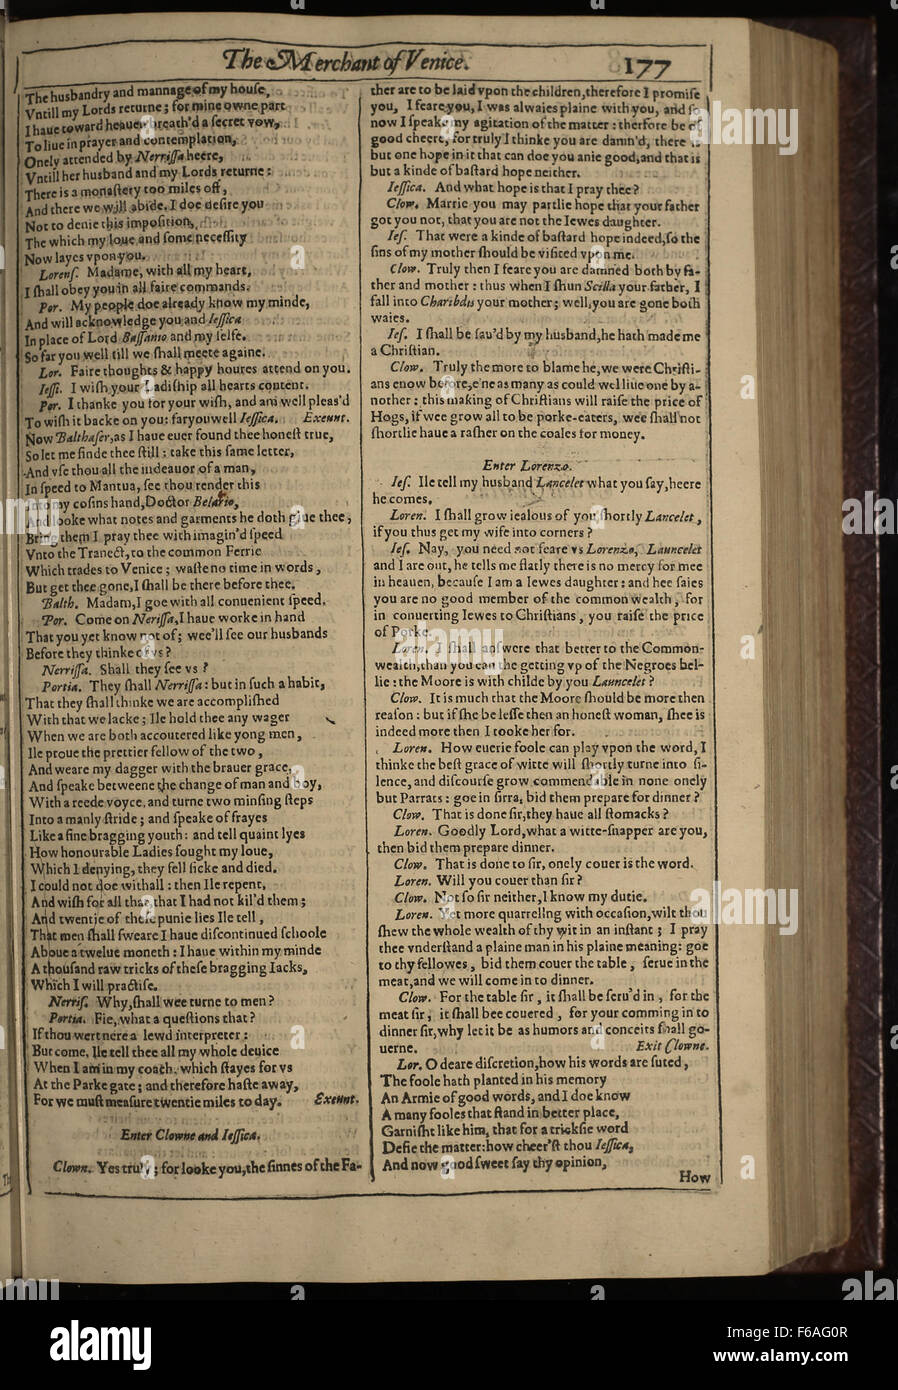 The Merchant of Venice. 177
The husbandry and mannage of my house,
Vntill my Lords returne; for mine owne part
I haue toward heauen breath'd a secret vow,
To liue in prayer and contemplation,
Onely attended by Nerrissa heere,
Vntill her husband and my Lords returne:
There is a monastery too miles off,
And there we will abide. I doe desire you
Not to denie this imposition,
The which my loue and some necessity
Now layes vpon you.
Lorens. Madame, with all my heart,
I shall obey you in all faire commands.
Por. My people doe already know my minde,
And will acknowledge you and Iessica
In place of Lord Bassanio and my selfe.
So far you well till we shall meete againe.
Lor. Faire thoughts & happy houres attend on you.
Iessi. I wish your Ladiship all hearts content.
Por. I thanke you for your wish, and am well pleas'd
To wish it backe on you: faryouwell Iessica. Exeunt.
Now Balthaser, as I haue euer found thee honest true,
So let me finde thee still: take this same letter,
And vse thou all the indeauor of a man,
In speed to Mantua, see thou render this
Into my cosins hand, Doctor Belario,
And looke what notes and garments he doth giue thee,
Bring them I pray thee with imagin'd speed
Vnto the Tranect, to the common Ferrie
Which trades to Venice; waste no time in words,
But get thee gone, I shall be there before thee.
Balth. Madam, I goe with all conuenient speed.
Por. Come on Nerissa, I haue worke in hand
That you yet know not of; wee'll see our husbands
Before they thinke of vs?
Nerrissa. Shall they see vs?
Portia. They shall Nerrissa: but in such a habit,
That they shall thinke we are accomplished
With that we lacke; Ile hold thee any wager
When we are both accoutered like yong men,
Ile proue the prettier fellow of the two,
And weare my dagger with the brauer grace,
And speake betweene the change of man and boy,
With a reede voyce, and turne two minsing steps
Into a manly stride; and speake of frayes
Like a fine bragging youth: and tell quaint lyes
How honourable Ladies sought my loue,
Which I denying, they fell sicke and died.
I could not doe withall: then Ile repent,
And wish for all that, that I had not kil'd them;
And twentie of these punie lies Ile tell,
That men shall sweare I haue discontinued schoole
Aboue a twelue moneth: I haue within my minde
A thousand raw tricks of these bragging Iacks,
Which I will practise.
Nerris. Why, shall wee turne to men?
Portia. Fie, what a questions that?
If thou wert nere a lewd interpreter:
But come, Ile tell thee all my whole deuice
When I am in my coach, which stayes for vs
At the Parke gate; and therefore haste away,
For we must measure twentie miles to day. Exeunt.
Enter Clowne and Iessica.
Clown. Yes truly; for looke you, the sinnes of the Fa-
ther are to be laid vpon the children, therefore I promise
you, I feare you, I was alwaies plaine with you, and so
now I speake my agitation of the matter: therfore be of
good cheere, for truly I thinke you are damn'd, there is
but one hope in it that can doe you anie good, and that is
but a kinde of bastard hope neither.
Iessica. And what hope is that I pray thee?
Clow. Marrie you may partlie hope that your father
got you not, that you are not the Iewes daughter.
Ies. That were a kinde of bastard hope indeed, so the
sins of my mother should be visited vpon me.
Clow. Truly then I feare you are damned both by fa-
ther and mother: thus when I shun Scilla your father, I
fall into Charibdis your mother; well, you are gone both
waies.
Ies. I shall be sau'd by my husband, he hath made me
a Christian.
Clow. Truly the more to blame he, we were Christi-
ans enow before, e'ne as many as could wel liue one by a-
nother: this making of Christians will raise the price of
Hogs, if wee grow all to be porke-eaters, wee shall not
shortlie haue a rasher on the coales for money.
Enter Lorenzo.
Ies. Ile tell my husband Lancelet what you say, heere
he comes.
Loren. I shall grow iealous of you shortly Lancelet,
if you thus get my wife into corners?
Ies. Nay, you need not feare vs Lorenzo, Launcelet
and I are out, he tells me flatly there is no mercy for mee
in heauen, because I am a Iewes daughter: and hee saies
you are no good member of the common wealth, for
in conuerting Iewes to Christians, you raise the price
of Porke.
Loren. I shall answere that better to the Common-
wealth, than you can the getting vp of the Negroes bel-
lie: the Moore is with childe by you Launcelet?
Clow. It is much that the Moore should be more then
reason: but if she be lesse then an honest woman, shee is
indeed more then I tooke her for.
Loren. How euerie foole can play vpon the word, I
thinke the best grace of witte will shortly turne into si-
lence, and discourse grow commendable in none onely
but Parrats: goe in sirra, bid them prepare for dinner?
Clow. That is done sir, they haue all stomacks?
Loren. Goodly Lord, what a witte-snapper are you,
then bid them prepare dinner.
Clow. That is done to sir, onely couer is the word.
Loren. Will you couer than sir?
Clow. Not so sir neither, I know my dutie.
Loren. Yet more quarreling with occasion, wilt thou
shew the whole wealth of thy wit in an instant; I pray
thee vnderstand a plaine man in his plaine meaning: goe
to thy fellowes, bid them couer the table, serue in the
meat, and we will come in to dinner.
Clow. For the table sir, it shall be seru'd in, for the
meat sir, it shall bee couered, for your comming in to
dinner sir, why let it be as humors and conceits shall go-
uerne. Exit Clowne.
Lor. O deare discretion, how his words are suted,
The foole hath planted in his memory
An Armie of good words, and I doe know
A many fooles that stand in better place,
Garnisht like him, that for a tricksie word
Defie the matter: how cheer'st thou Iessica,
And now good sweet say thy opinion,
How
alamy stock photo
F6AG0R
www.alamy.com